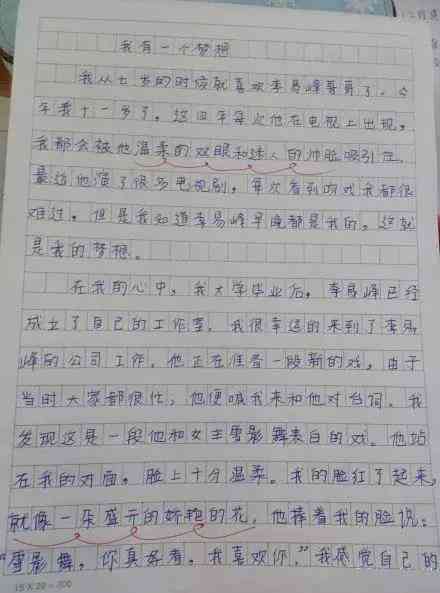 我有一个梦想
我从七岁的时候就喜欢李易峰哥哥了。今
年我十一岁了。这四年每次他在电视上出现，
我都会被他温柔的双眼和迷人的帅脸吸引住，
最近他演了很多电视剧，每次看到吻戏我都很
难过。但是我知道李易峰早晚都是我的。这就
是我的梦想。
在我的心中，我大学毕业后，李易峰已经
成立了自己的工作室。我很幸运的来到了李易
峰的公司工作。他正在准备一段新的戏，由于
当时大家都很忙，他便喊我来和他对台词。我
发现这是一段他和女主雪影舞表白的戏。他站
在我的对面，脸上十分温柔。我的脸红了起来，
就像一朵盛开的娇艳的花，他捧着我的脸说：
“雪影舞，你真好看，我喜欢你，”我感觉自己的
15×20=300